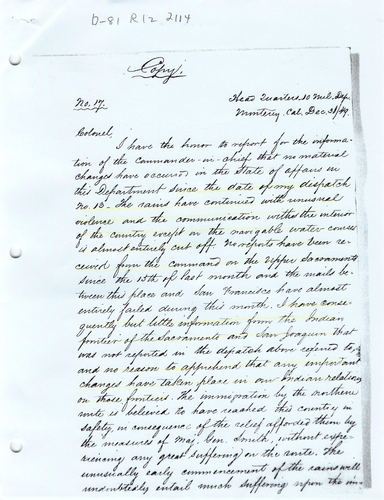 D-81 R12 2114
Copy.
No. 17. Head Quarters 10 Mil. Dep.
Monterey, Cal. Dec. 31/49.
Colonel,
I have the honor to report for the informa-
tion of the Commander-in-chief that no material
changes have occurred in the State of affairs in
this Department since the date of my dispatch
No. 13. The rains have continued with unusual
violence and the communication with the interior
of the country except on the navigable water courses
is almost entirely cut off. No reports have been re-
ceived from the command on the Upper Sacramento
since the 15th of last month and the mails be-
tween this place and San Francisco have almost
entirely failed during this month. I have conse-
quently but little information from the Indian
frontier of the Sacramento and San Joaquin that
was not reported in the dispatch above referred to,
and no reason to apprehend that any important
changes have taken place in our Indian relations
on those frontiers. The immigration by the northern
route is believed to have reached this country in
safety, in consequence of the relief afforded them by
the measures of Maj. Gen. Smith, without expe-
riencing any great suffering on the route. The
unusually early commencement of the rains will
undoubtedly entail much suffering upon the im-